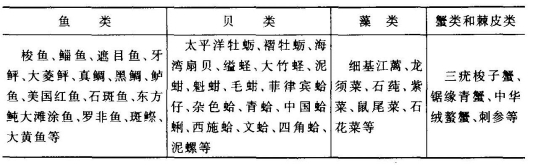 鱼 类
贝 类
藻 类
蟹类和棘皮类
梭鱼、鲻鱼、遮目鱼、牙
鲆、大菱鲆、真鲷、黑鲷、鲈
鱼、美国红鱼、石斑鱼、东方
鲀大滩涂鱼、罗非鱼、斑鰶、
大黄鱼等
太平洋牡蛎、褶牡蛎、海
湾扇贝、缢蛏、大竹蛏、泥
蚶、魁蚶、毛蚶、菲律宾蛤
仔、杂色蛤、青蛤、中国蛤
蜊、西施蛤、文蛤、四角蛤、
泥螺等
细基江蓠、龙
须菜、石莼、紫
菜、鼠尾菜、石
花菜等
三疣梭子蟹、
锯缘青蟹、中华
绒螯蟹、刺参等